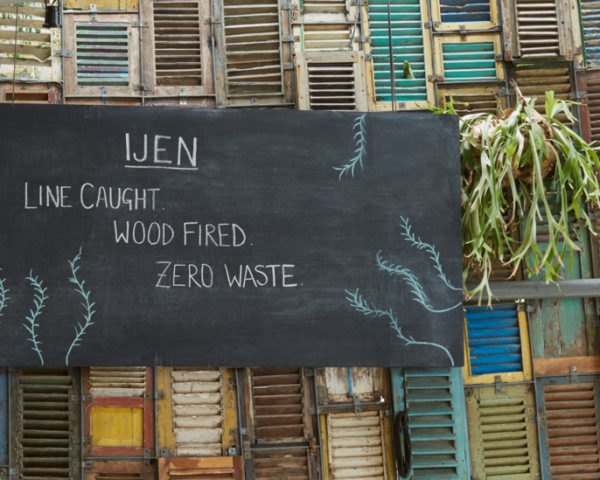 IJEN
LINE CAUGHT.
WOOD FIRED.
ZERO WASTE.